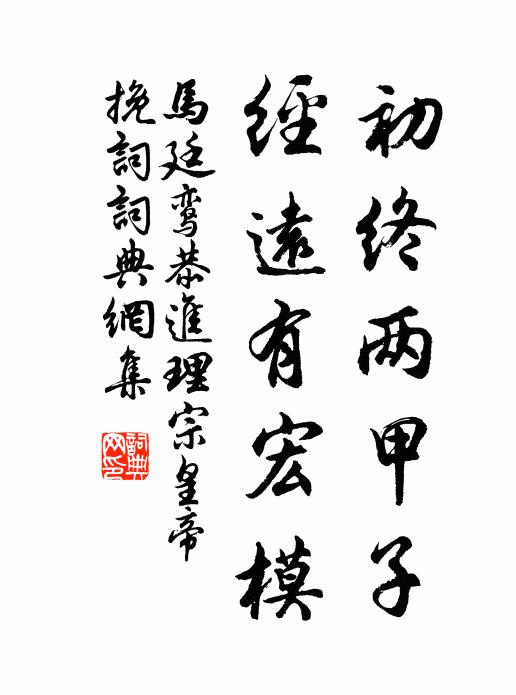 初终两甲子
經遠有宏模
馬廷鸾恭進理宗皇帝
挽詞詞典網集
詞典网印